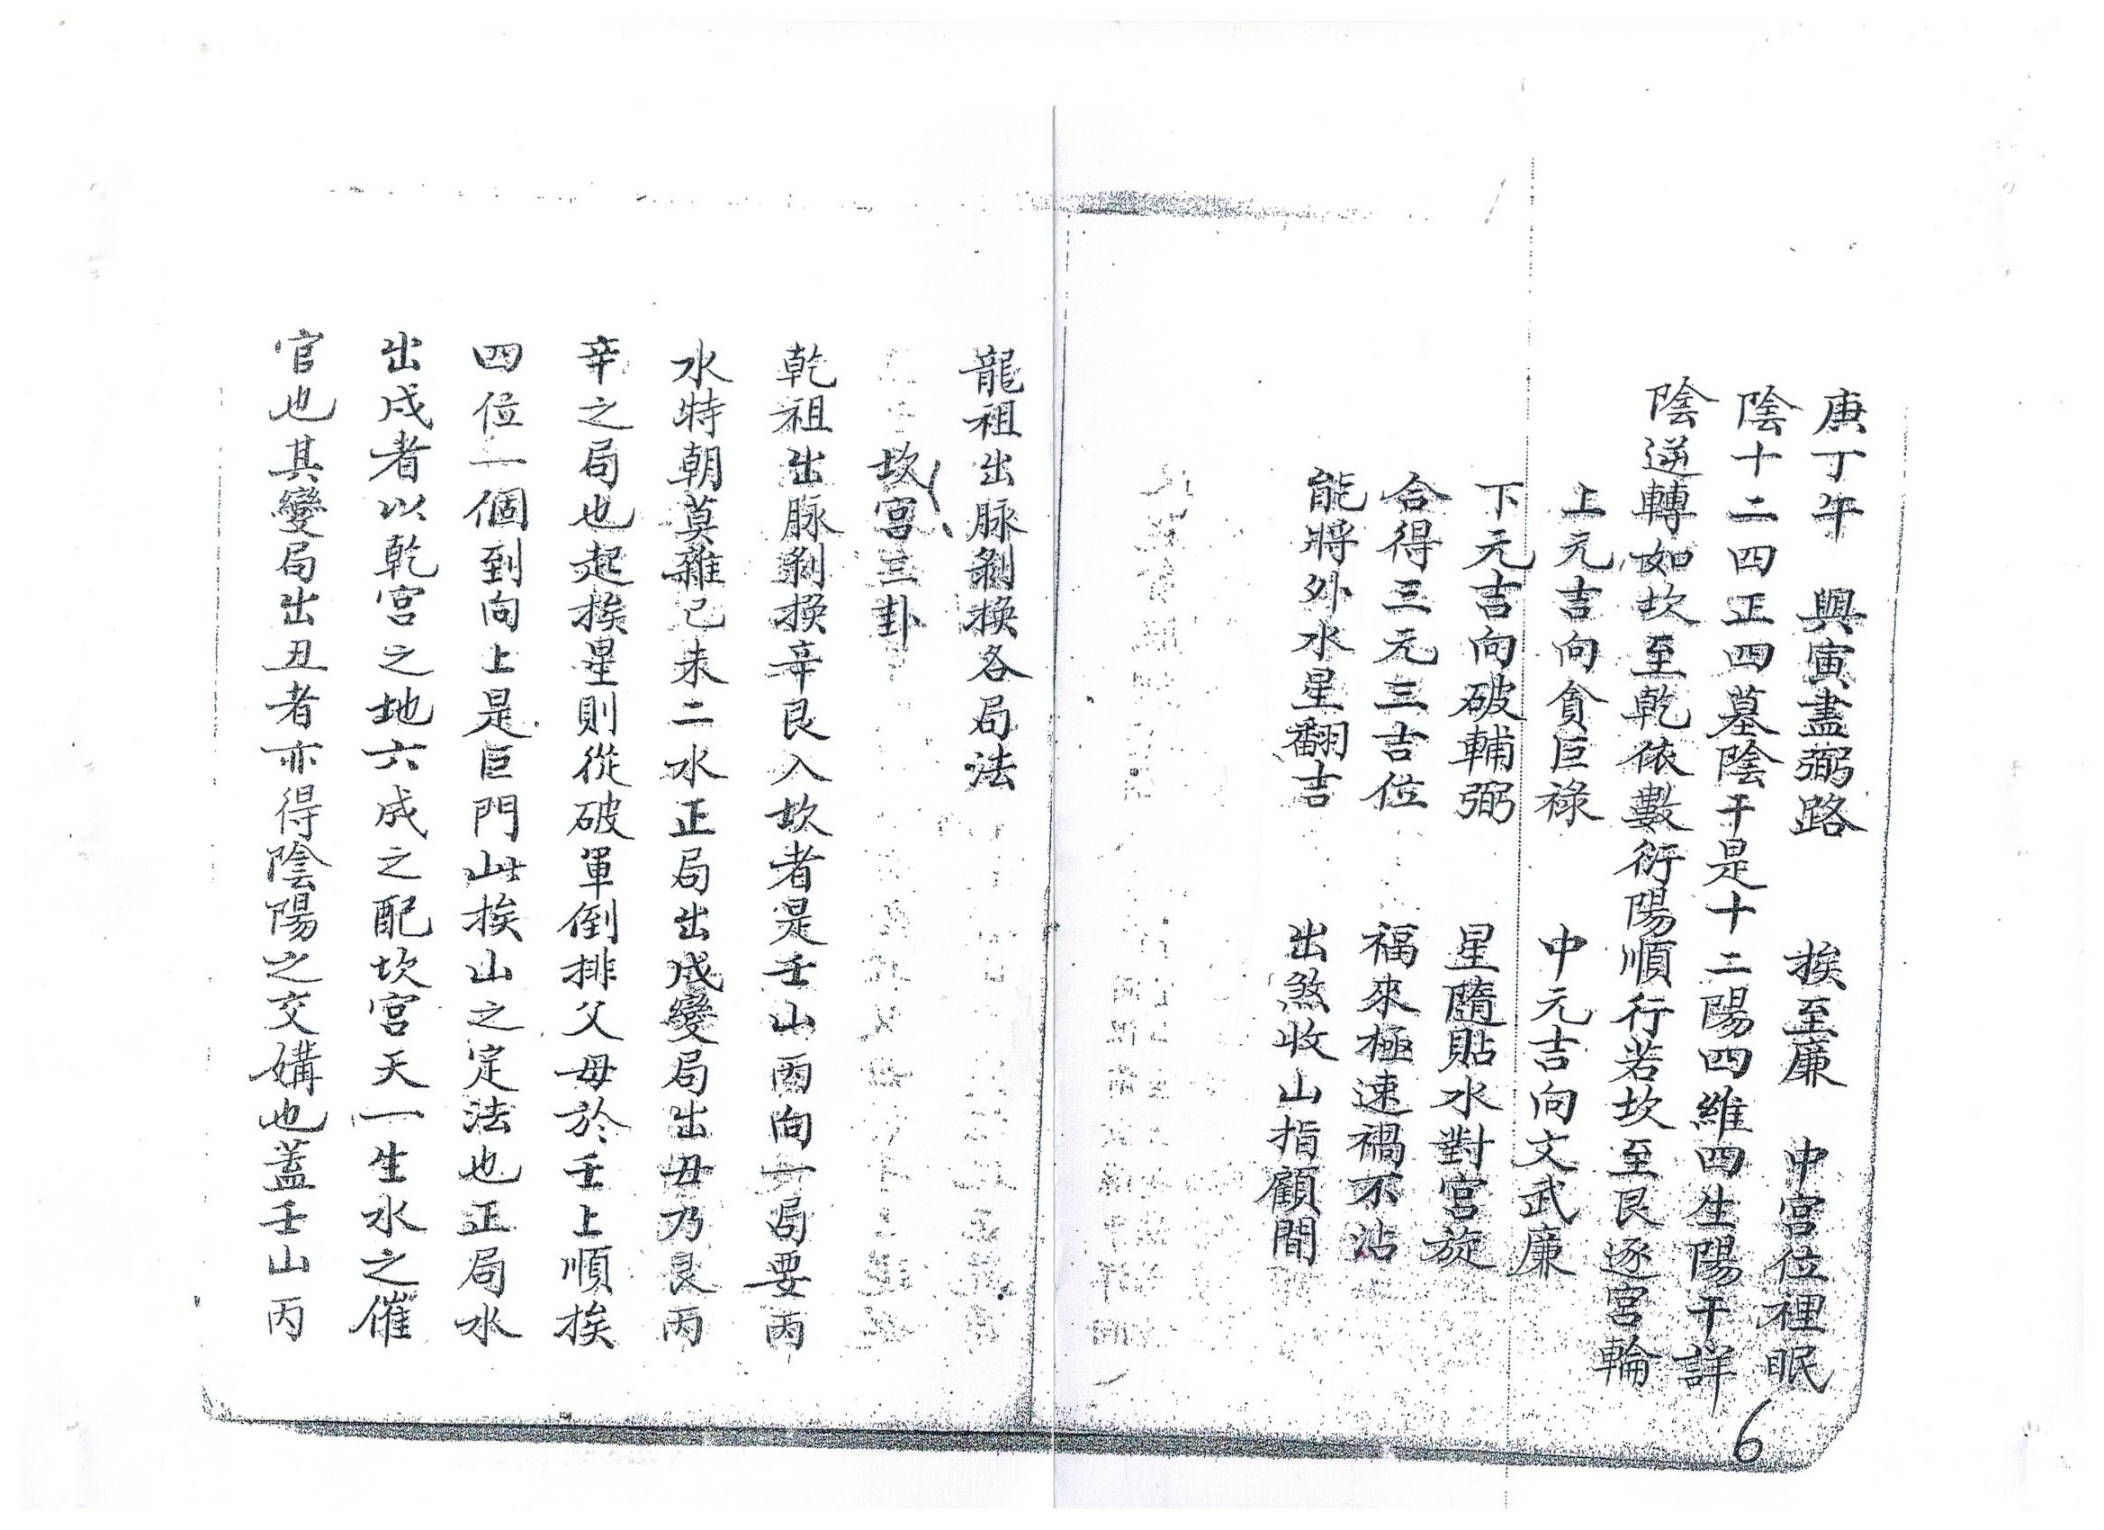 庚丁午　與寅盡弼路　挨至廉　中宮位裡眠
陰十二四正四墓陰干是十二陽四維四生陽干詳
陰逆轉如坎至乾依數衍陽順行若坎至艮逐宮輪
上元吉向貪巨祿　中元吉向文武廉
下元吉向破輔弼　星隨貼水對宮旋
合得三元三吉位　福來極速禍不沾
能將外水星翻吉　出煞收山指顧間
6
龍祖出脉剝換各局法
坎宮三卦
乾祖出脉剝換辛艮入坎者是壬山丙向一局要丙
水特朝莫雜己未二水正局出戍變局出丑乃艮丙
辛之局也起挨星則從破軍倒排父母於壬上順挨
四位一個到向上是巨門此挨山之定法也正局水
出戍者以乾宮之地六成之配坎宮天一生水之催
官也其變局出丑者亦得陰陽之交媾也蓋壬山丙